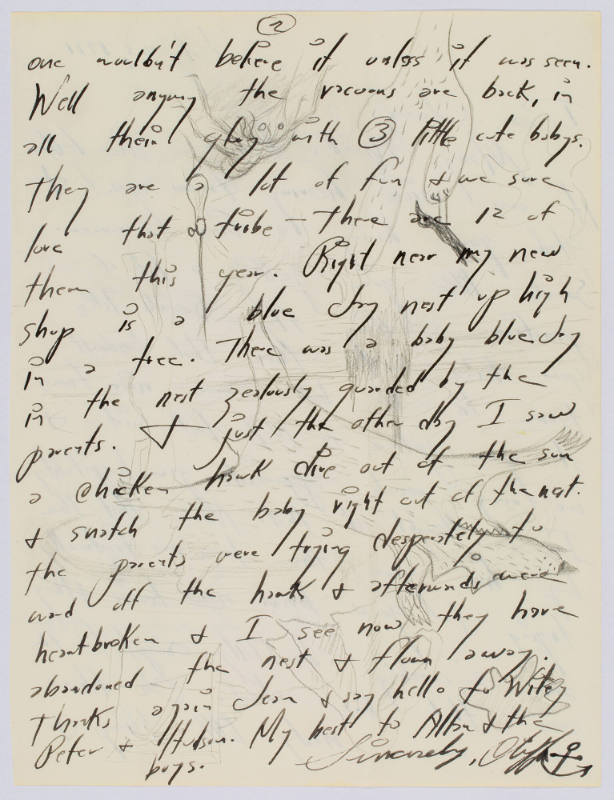 2
one wouldn't believe it unless it was seen.
Well anyway the racoons are back, in
all their glory with 3 little cute babys.
They are a lot of fun & we sure
love that tribe — there are 12 of
them this year. Right near my new
shop is a blue Jay nest up high
in a tree. There was a baby blue Jay
in the nest zealously guarded by the
parents. & just the other day I saw
a chicken hawk dive out of the sun
& snatch the baby right out of the nest.
the parents were trying desperately to
ward off the hawk & afterwards were
heartbroken & I see now they have
abandoned the nest & flown away.
Thanks again Jean & say hello to Wiley
Peter & Hudson. My best to Alton & the
boys. Sincerely,